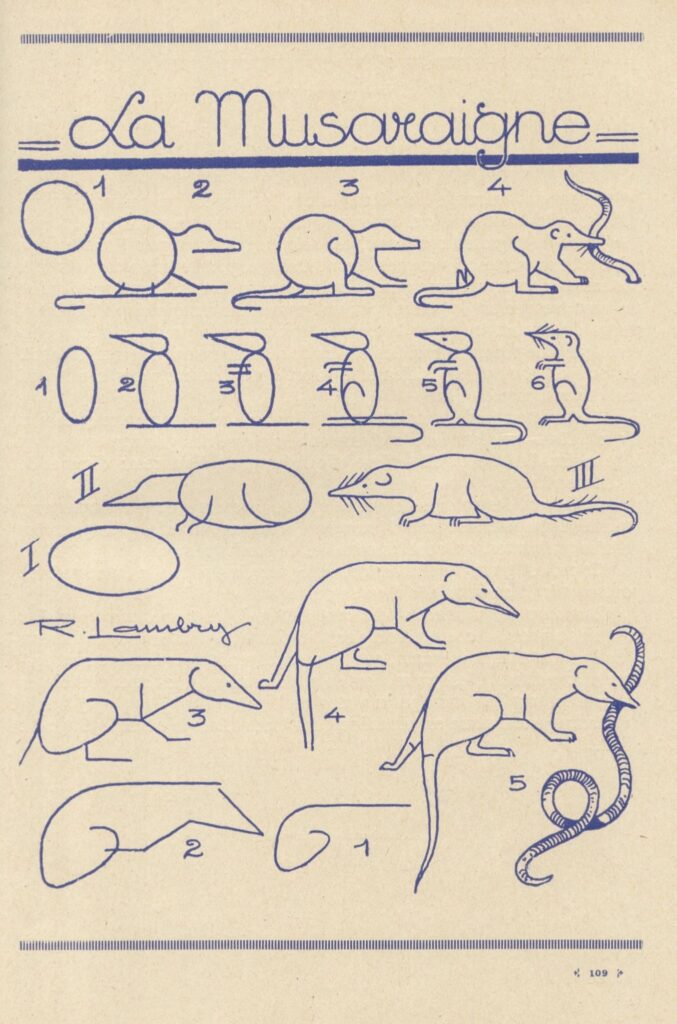 La Musaraigne
1 2 3 4
1 2 3 4 5 6
II III
I
R. Lambry
3 4
5
2 1
109